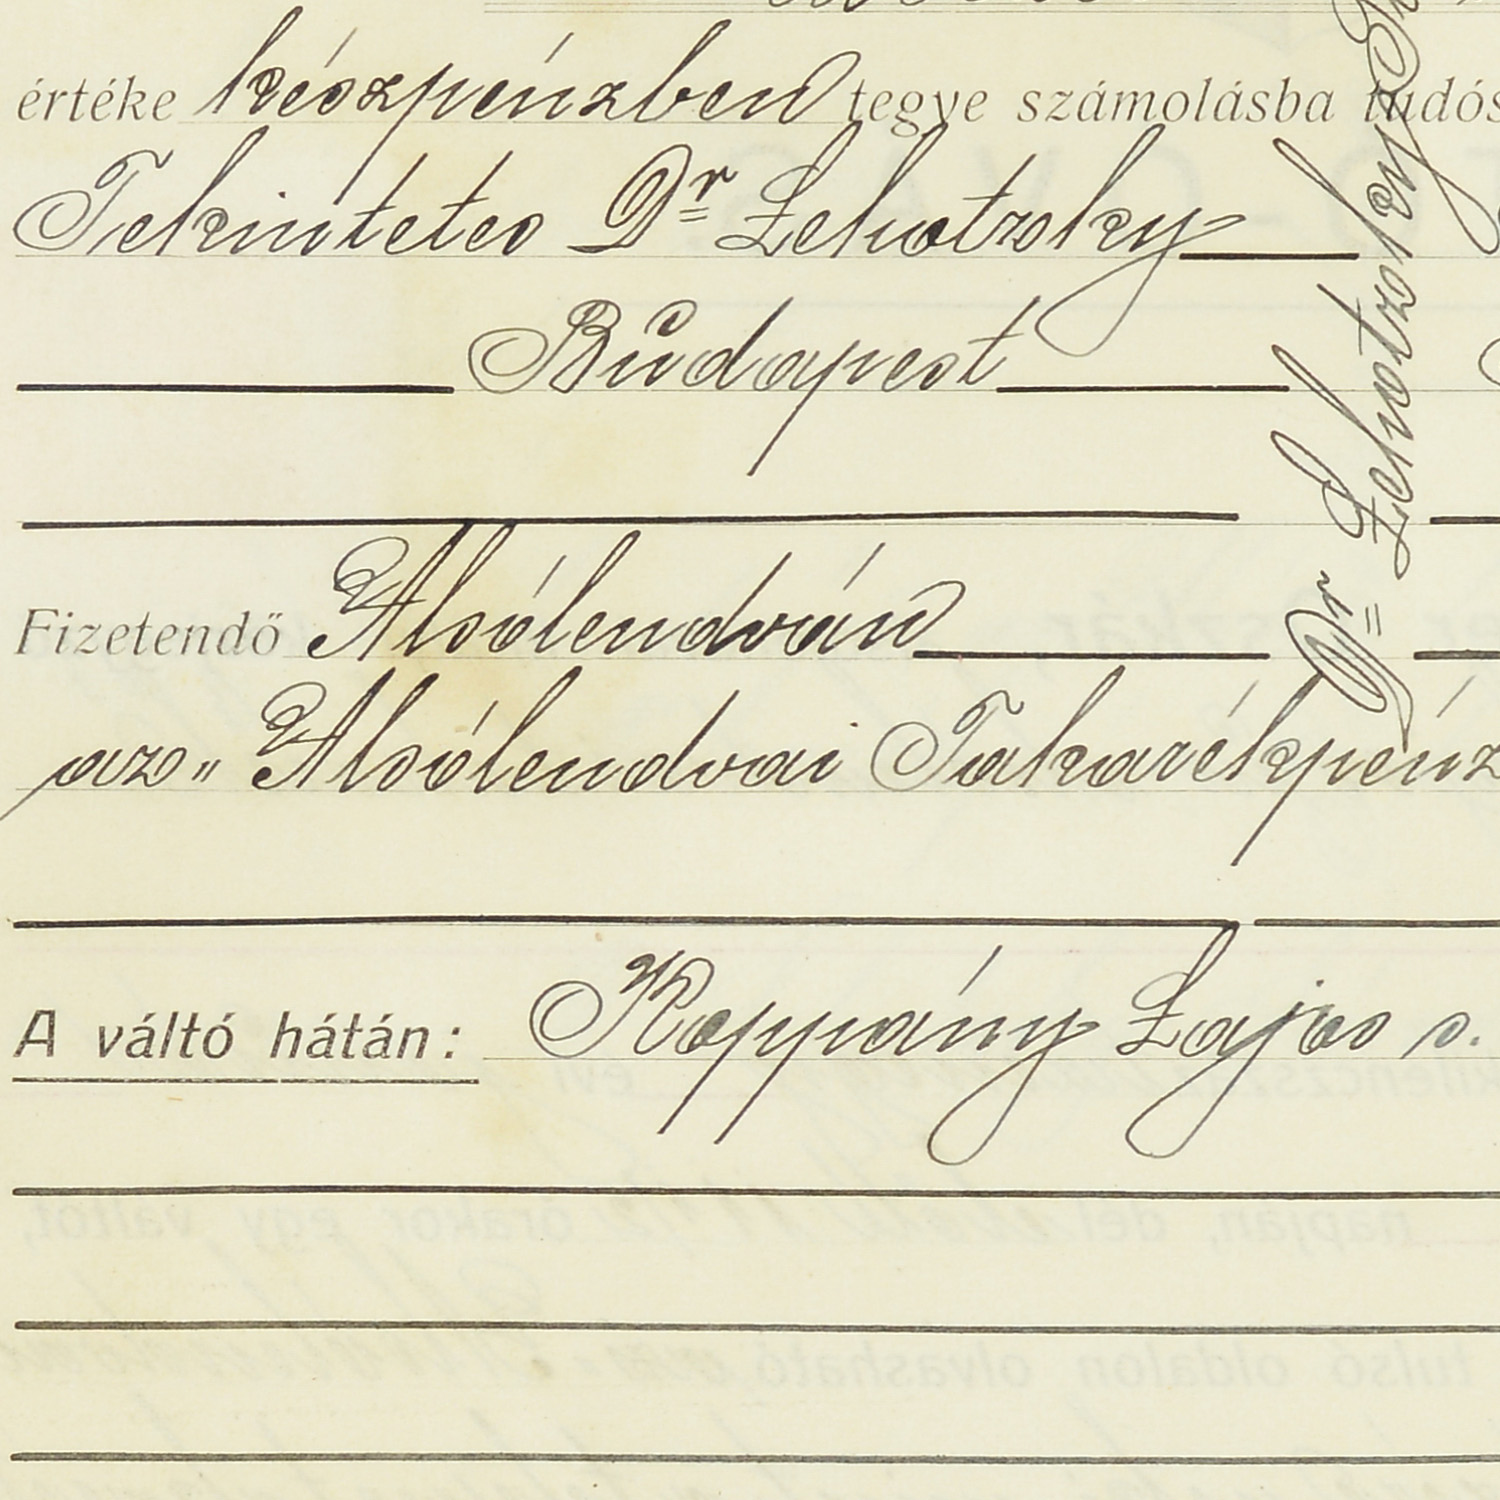 értéke készpénzben tegye számolásba tudós
Tekintetes Dr Lehotzky
Budapest
Fizetendő Alsólendván
az„ Alsólendvai Takarékpénz
A váltó hátán: Koppány Lajos s.
Dr Lehotzky